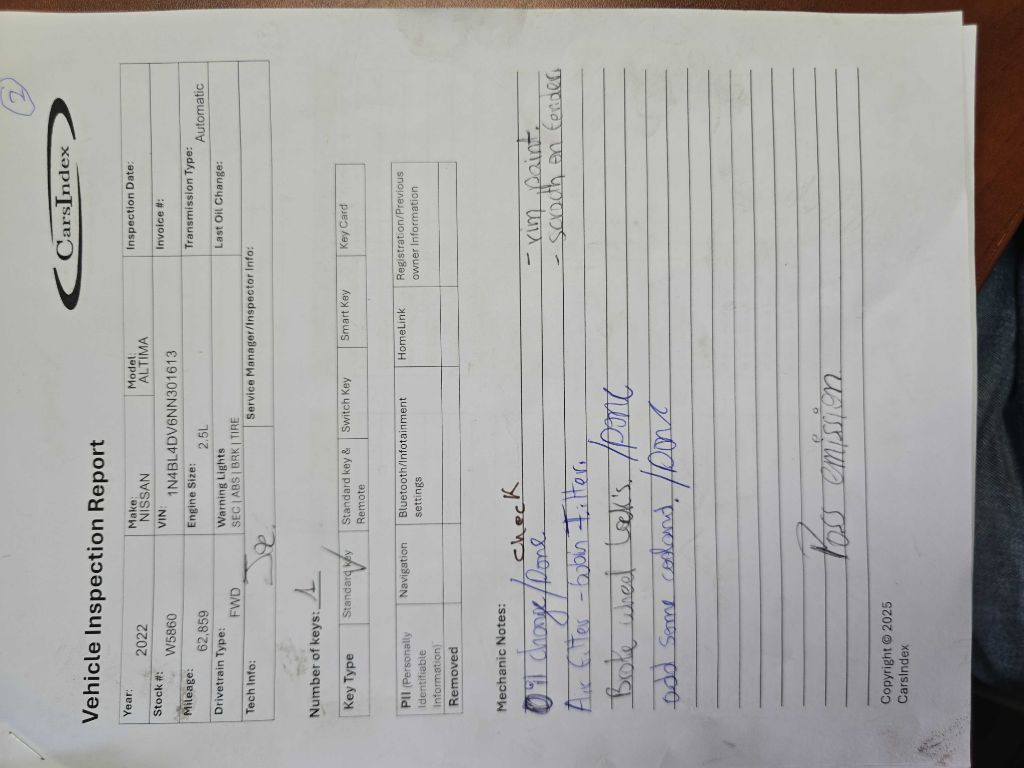 2
CarsIndex
Vehicle Inspection Report
Year: 2022 Make: NISSAN Model: ALTIMA Inspection Date:
Stock #: W5860 VIN: 1N4BL4DV6NN301613 Invoice #:
Mileage: 62,859 Engine Size: 2.5L Transmission Type: Automatic
Drivetrain Type: FWD Warning Lights SEC | ABS | BRK | TIRE Last Oil Change:
Tech Info: Joe. Service Manager/Inspector Info:
Number of keys: 1
Key Type Standard key Standard key & Remote Switch Key Smart Key Key Card
PII (Personally Identifiable Information) Navigation Bluetooth/Infotainment settings HomeLink Registration/Previous owner Information
Removed
Mechanic Notes:
Oil change/Done check - rim paint.
Air Fitter - Cabin Fitter. - scradh on fender.
Brake wheel Look's. /Donc
add some cooland. /Donc
Pass emission
Copyright © 2025
CarsIndex